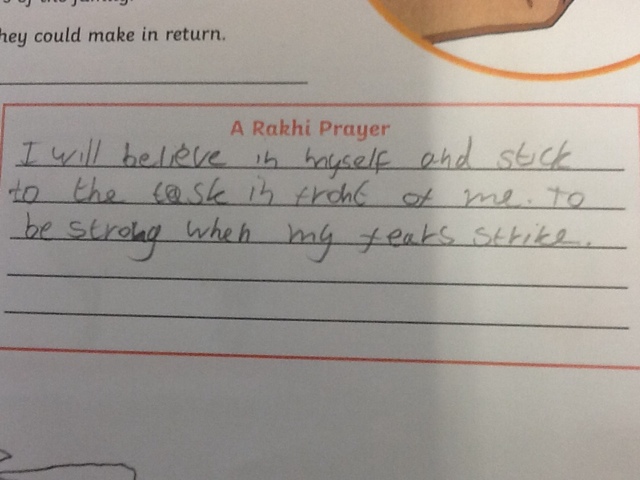 of the family.
hey could make in return.
A Rakhi Prayer
I will believe in myself and stick
to the task in front of me. To
be strong when my fears strike.